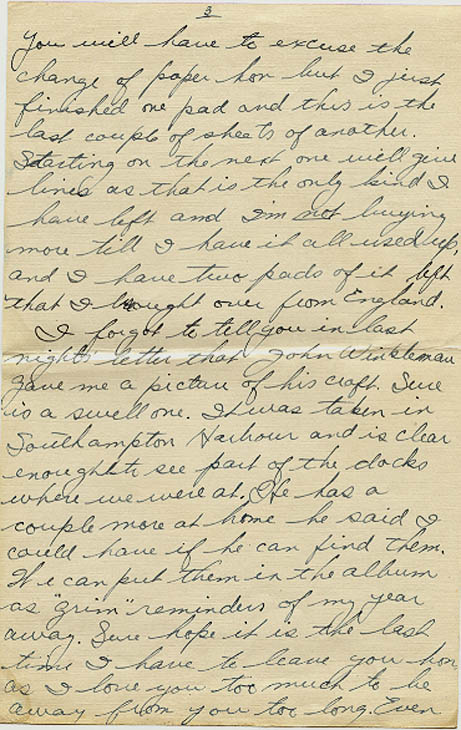 3
You will have to excuse the
change of paper hon but I just
finished one pad and this is the
last couple of sheets of another.
Starting on the next one will give
lines as that is the only kind I
have left and I'm not buying
more till I have it all used up,
and I have two pads of it left
that I brought over from England.
I forgot to tell you in last
nights letter that John Winkleman
gave me a picture of his craft. Sure
is a swell one. It was taken in
Southampton Harbour and is clear
enough to see part of the docks
where we were at. He has a
couple more at home he said I
could have if he can find them.
We can put them in the album
as "grim" reminders of my year
away. Sure hope it is the last
time I have to leave you hon
as I love you too much to be
away from you too long. Even